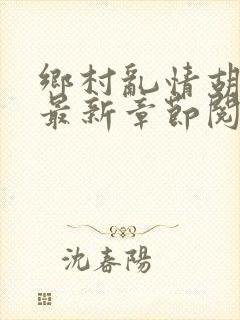 鄉村亂情胡
最新章節閱
沈春陽